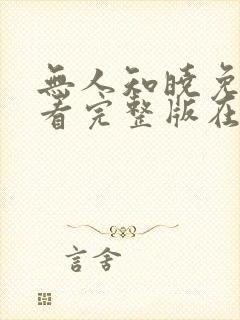 無人知曉免
看完整版在
言舍